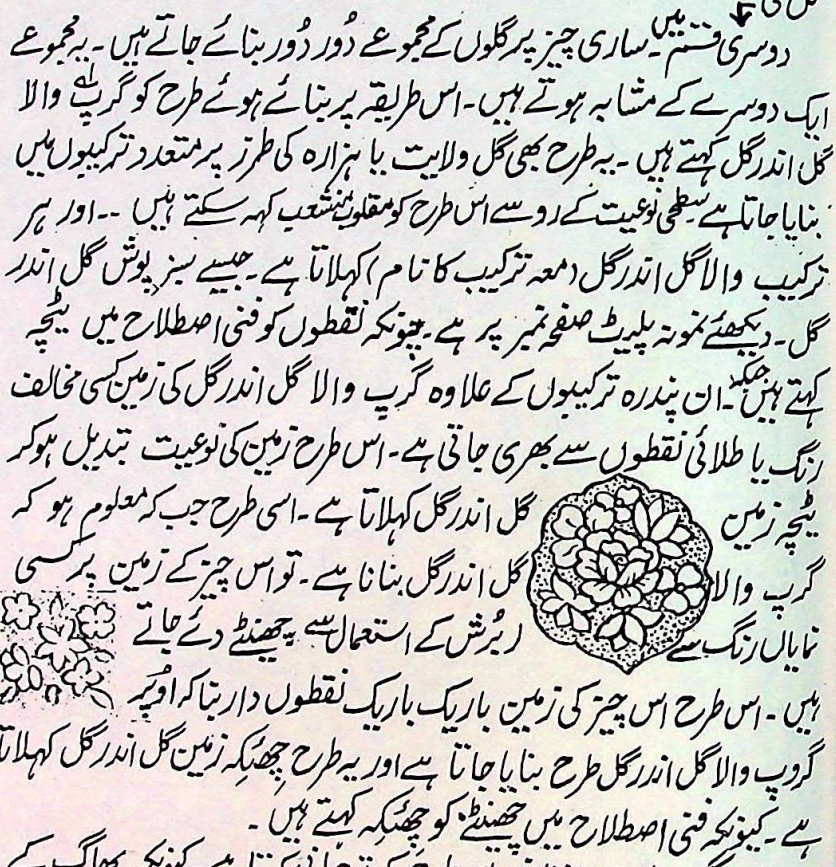 گل کی
دوسری قسم میں۔ ساری چیز پر گلوں کے مجموعے دُور دُور بنائے جاتے ہیں۔ یہ مجموعے
ایک دوسرے کے مشابہ ہوتے ہیں۔ اس طریقہ پر بنائے ہوئے طرح کو گرپ والا
گل اندر گل کہتے ہیں۔ یہ طرح بھی گل ولایت یا ہزارہ کی طرز پر متعدد ترکیبوں میں
بنایا جاتا ہے سطحی نوعیت کے رو سے اس طرح کو مقلوب منشعب کہہ سکتے ہیں ۔۔ اور ہر
ترکیب والا گل اندر گل (معہ ترکیب کا نام) کہلاتا ہے۔ جیسے سبز پوش گل اندر
گل۔ دیکھئے نمونہ پلیٹ صفحہ نمبر پر ہے۔ چونکہ نقطوں کو فنی اصطلاح میں ٹیچہ
کہتے ہیں جبکہ۔ ان پندرہ ترکیبوں کے علاوہ گرپ والا گل اندر گل کی زمین کسی مخالف
رنگ یا طلائی نقطوں سے بھری جاتی ہے۔ اس طرح زمین کی نوعیت تبدیل ہو کر
ٹیچہ زمین گل اندر گل کہلاتا ہے۔ اسی طرح جب کہ معلوم ہو کہ
گرپ والا گل اندر گل بنانا ہے۔ تو اس چیز کے زمین پر کسی
نمایاں رنگ سے بُرش کے استعمال سے چھنٹے دئے جاتے
ہیں۔ اس طرح اس چیز کی زمین باریک باریک نقطوں دار بنا کر اوپر
گروپ والا گل اندر گل طرح بنایا جاتا ہے اور یہ طرح چھئکہ زمین گل اندر گل کہلاتا
ہے۔ کیونکہ فنی اصطلاح میں چھینٹے کو چھئکہ کہتے ہیں۔